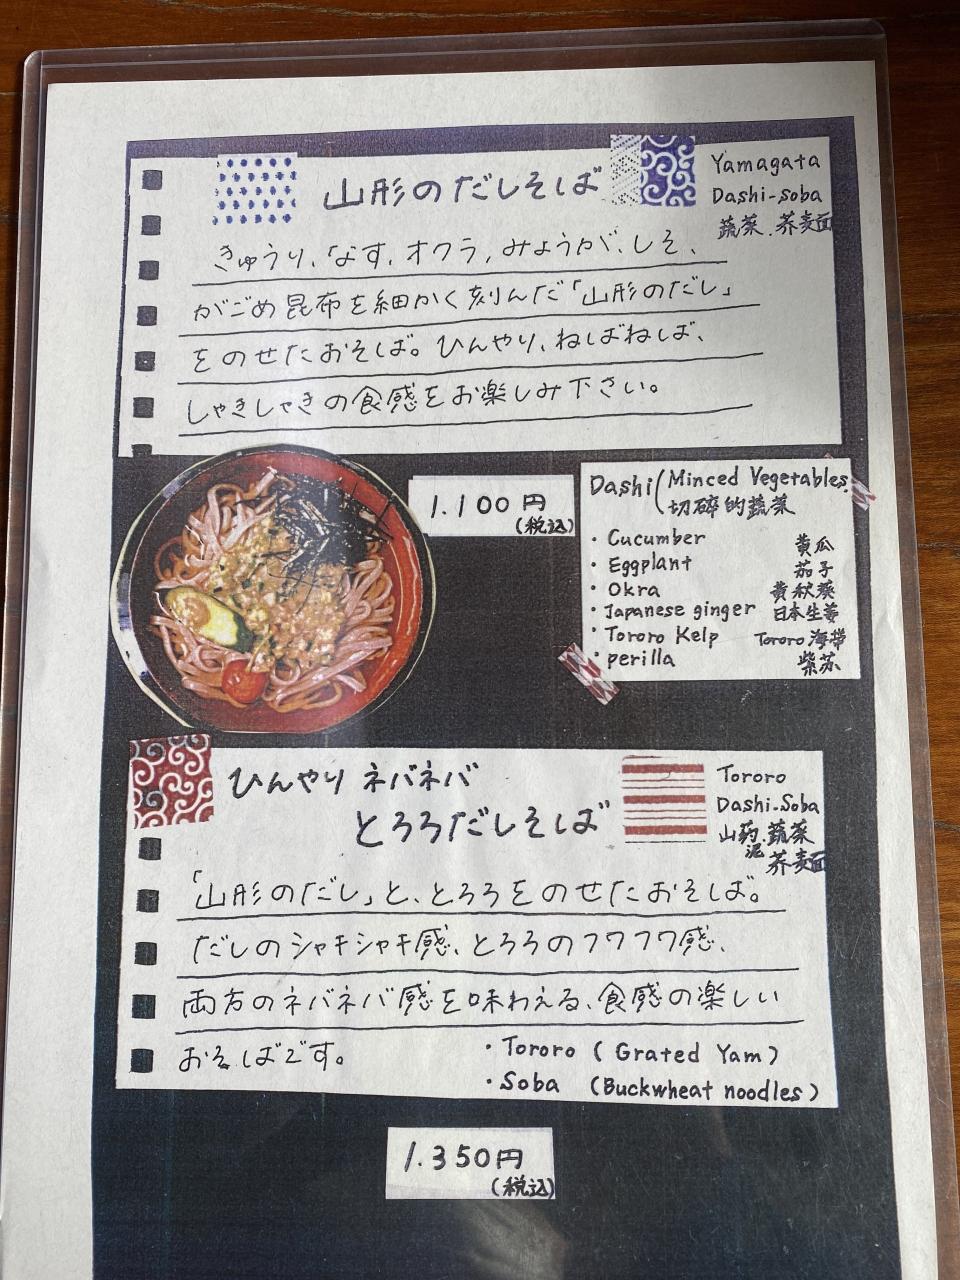 山形のだしそば
Yamagata
Dashi-soba
蔬菜.荞麺
きゅうり、なす、オクラ、みょうが、しそ、
がごめ昆布を細かく刻んだ「山形のだし」
をのせたおそば。ひんやり、ねばねば、
しゃきしゃきの食感をお楽しみ下さい。
1.100円
(税込)
Dashi(Minced Vegetables.
切碎的蔬菜
・Cucumber 黄瓜
・Eggplant 茄子
・Okra 黄秋葵
・Japanese ginger 日本生姜
・Tororo Kelp Tororo海带
・perilla 紫苏
ひんやり ネバネバ
とろろだしそば
Tororo
Dashi-Soba
山药泥.蔬菜
荞麺
「山形のだし」と、とろろをのせたおそば。
だしのシャキシャキ感、とろろのフワフワ感、
両方のネバネバ感を味わえる、食感の楽しい
おそばです。
・Tororo (Grated Yam)
・Soba (Buckwheat noodles)
1.350円
(税込)